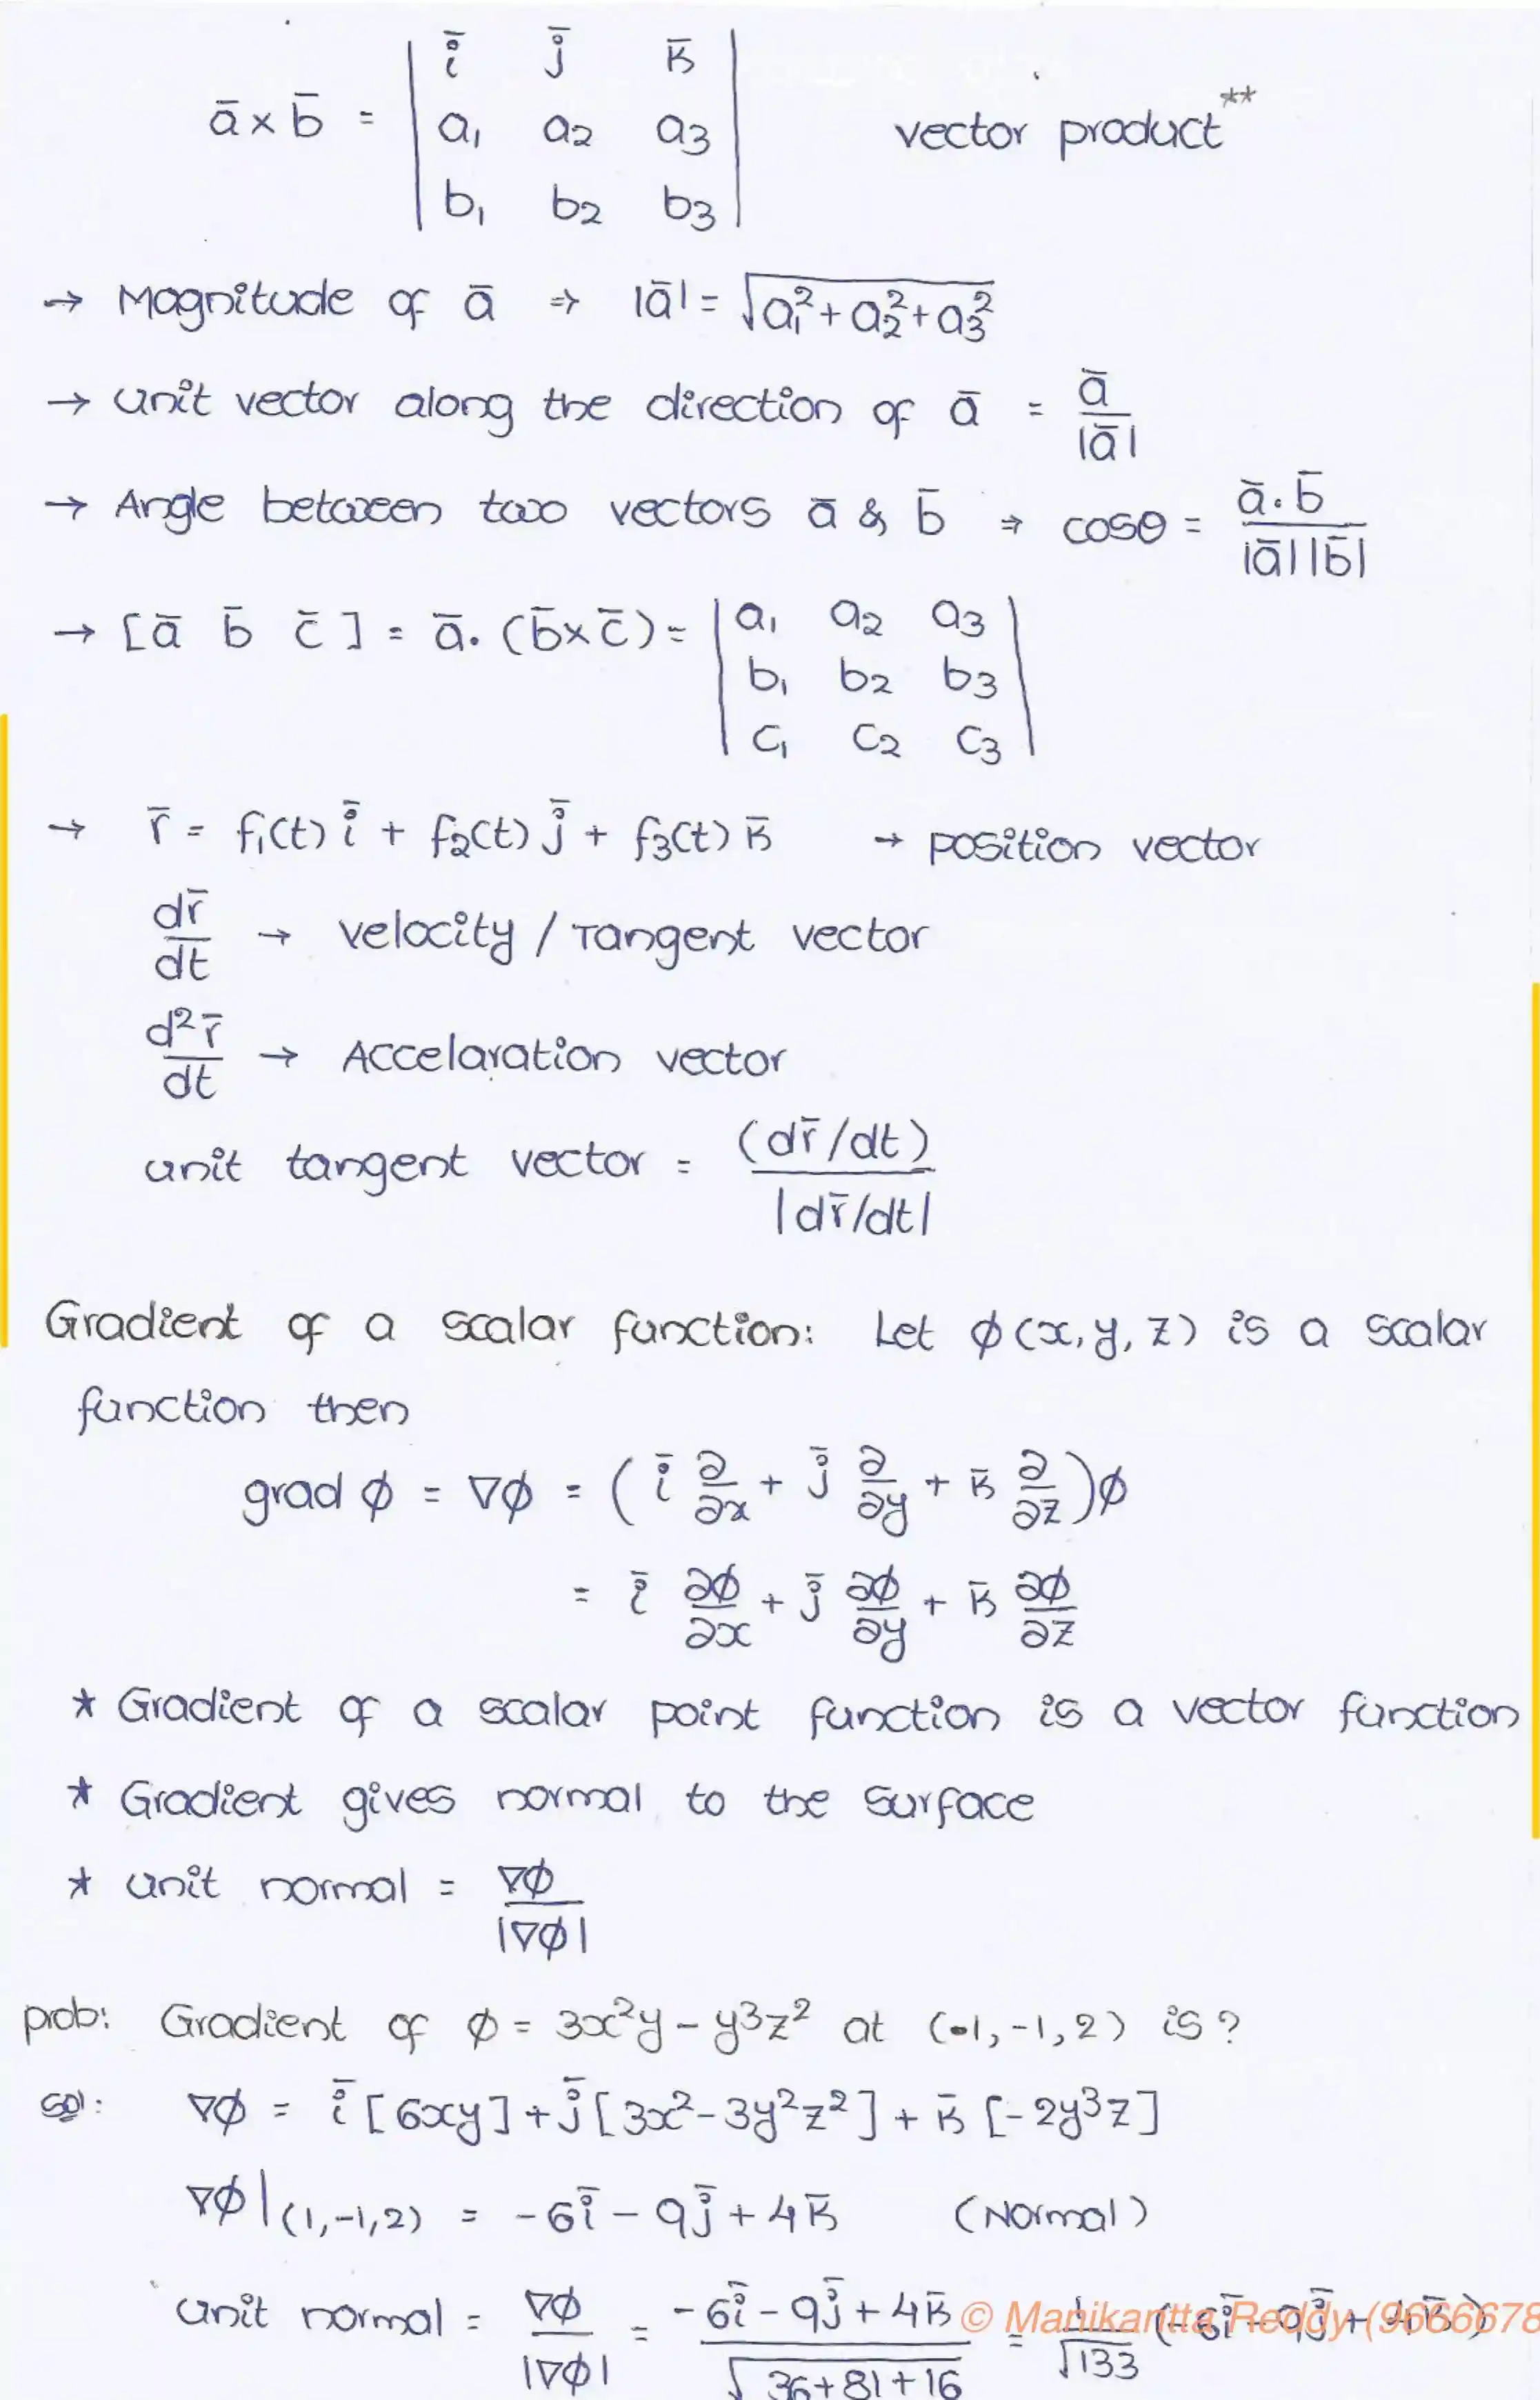 ā × b̄ = | ī j̄ k̄ |
| a₁ a₂ a₃ | vector product**
| b₁ b₂ b₃ |
→ Magnitude of ā ⇒ |ā| = √(a₁² + a₂² + a₃²)
→ unit vector along the direction of ā = ā / |ā|
→ Angle between two vectors ā & b̄ ⇒ cosθ = ā . b̄ / |ā| |b̄|
→ [ā b̄ c̄] = ā . (b̄ × c̄) = | a₁ a₂ a₃ |
| b₁ b₂ b₃ |
| c₁ c₂ c₃ |
→ r̄ = f₁(t) ī + f₂(t) j̄ + f₃(t) k̄ → position vector
dr̄/dt → velocity / Tangent vector
d²r̄/dt → Accelaration vector
unit tangent vector = (dr̄/dt) / |dr̄/dt|
Gradient of a scalar function: Let φ(x, y, z) is a scalar
function then
grad φ = ∇φ = ( ī ∂/∂x + j̄ ∂/∂y + k̄ ∂/∂z ) φ
= ī ∂φ/∂x + j̄ ∂φ/∂y + k̄ ∂φ/∂z
* Gradient of a scalar point function is a vector function
* Gradient gives normal to the surface
* unit normal = ∇φ / |∇φ|
prob: Gradient of φ = 3x²y - y³z² at (1, -1, 2) is?
sol: ∇φ = ī [6xy] + j̄ [3x² - 3y²z²] + k̄ [-2y³z]
∇φ|(1,-1,2) = -6ī - 9j̄ + 4k̄ (Normal)
unit normal = ∇φ / |∇φ| = -6ī - 9j̄ + 4k̄ / √(36+81+16) = 1/√133 (-6ī - 9j̄ + 4k̄)
© Manikantta Reddy (9666678